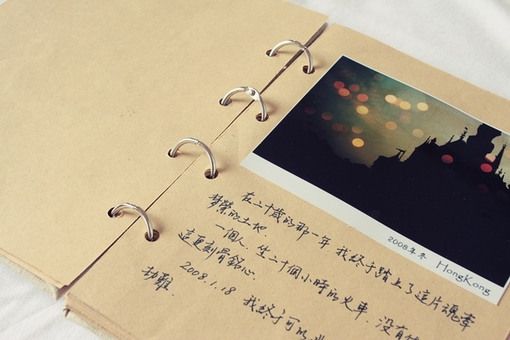 2008年冬 HongKong
在二十歲的那一年 我終于踏上了這片魂牽
夢縈的土地
一個人.坐二十個小時的火車.没有
這更刻骨銘心.
2008.1.18
我終于可以